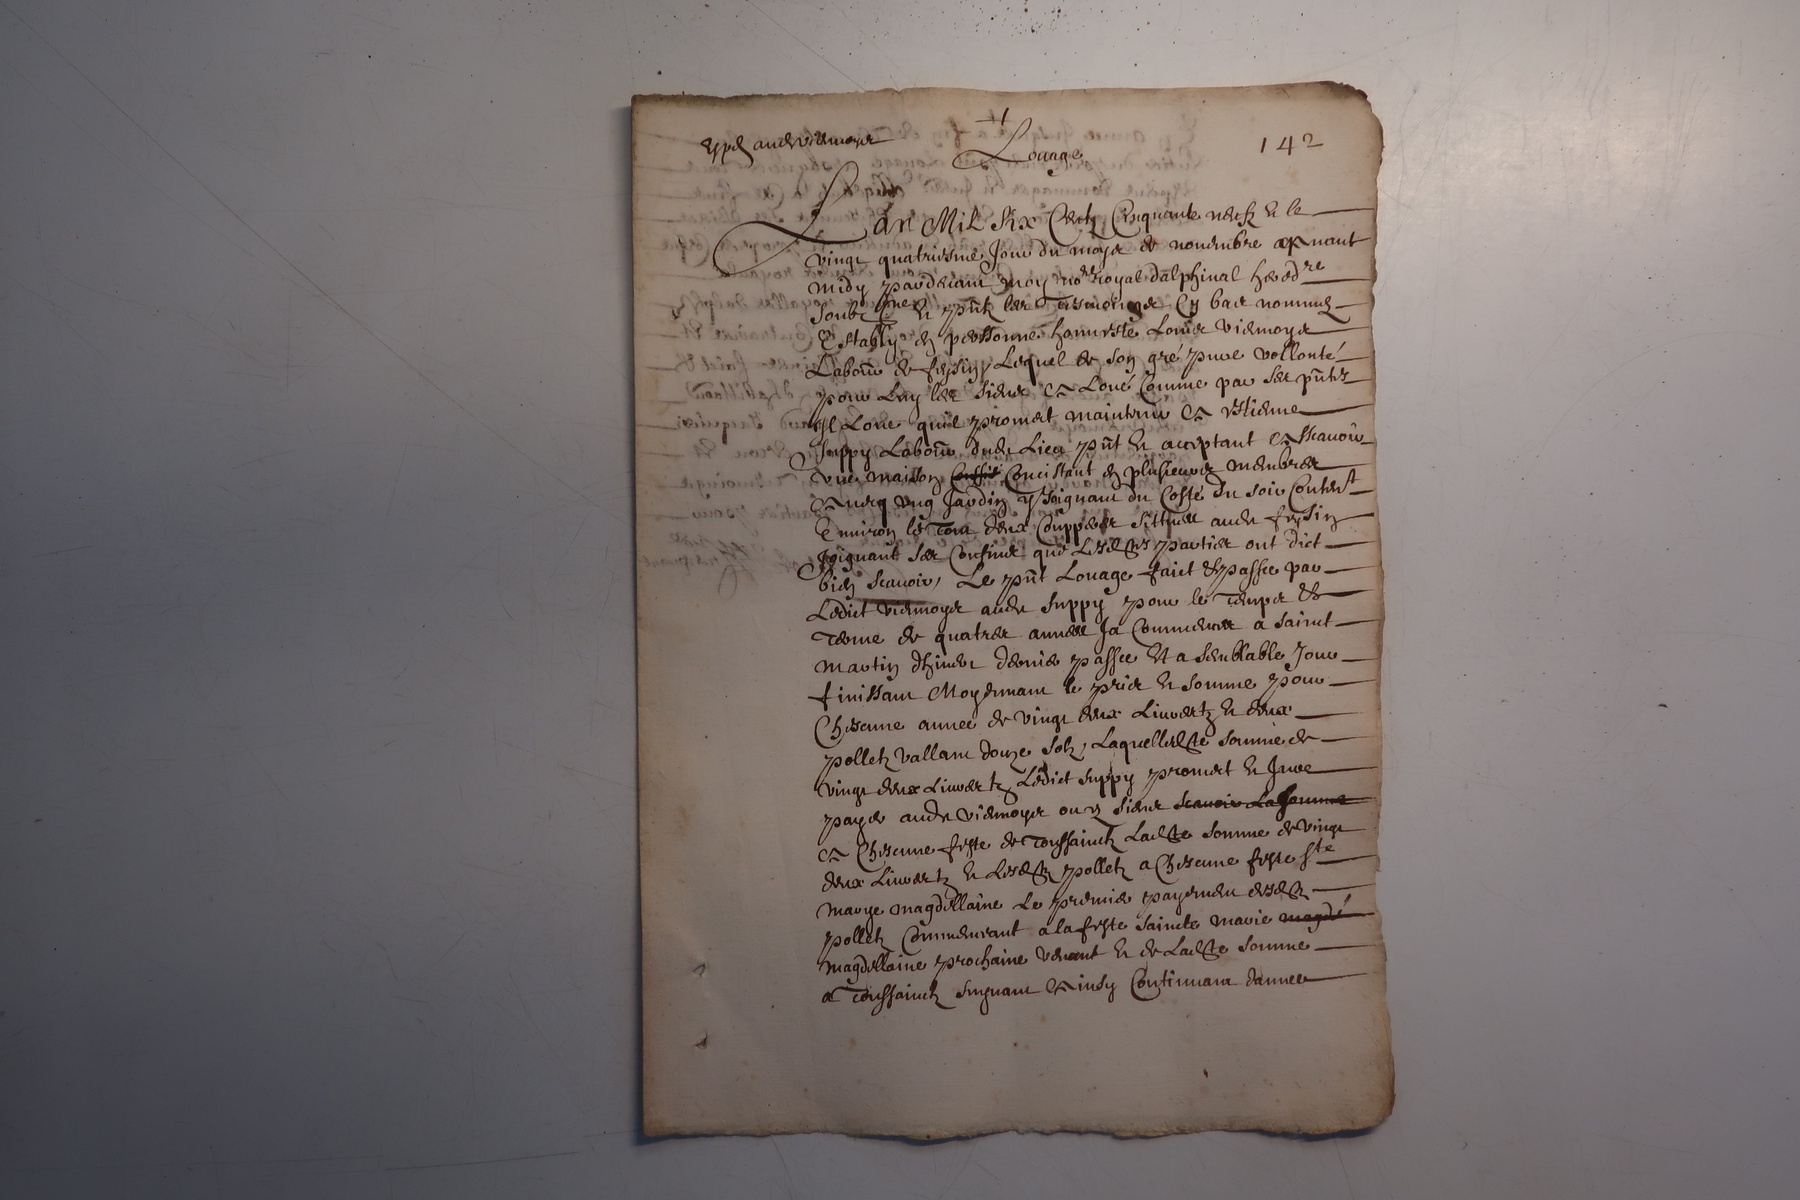 Louage
142
Lan Mil Six Centz Cinquante neufz & le
vingt quatriesme Jour du moys de novembre avant
midy pardevant moy no.re Royal dalphinal hered.re
soubz.ne & pntz les Tesmoings Cy bas nommez
Estably en personne honneste Louis viemoys
Labour de feysin, Lequel de son gré pure vollonté
pour Luy les siens a Loué Comme par ses pntes
Il Loue quil promect maintenir a Estienne
Suppy Labour dudt Lieu pnt & acceptant a scavoir
une maison Consis Concistant en plusieurs membres
avecq ung Jardin y Joignant du Costé du soir Conten.t
Environ le Tout deux Coupperes Sittuer audt feysin
Joignant ses Confins que Lesdtes parties ont dict
bien scavoir, Le pnt Louage faict & passee par
Ledict viemoys audt Suppy pour le Temps &
Terme de quatres annees Ja Commencer a sainct
martin dhiver dernier passee & a semblable Jour
finissant Moyennant le pris & somme pour
Chescune annee de vingt deux Livvres & deux
polletz vallant douze solz, Laquelledte somme de
vingt deux Livvres Ledict Suppy promect & Jure
payer audt viemoys ou es siens scavoir La somme
a Chescune feste de Toussainctz Ladte somme de vingt
deux Livvres & Lesdtz polletz a Chescune feste S.te
marye magdellaine Le premier payement desdtz
polletz Commencant a la feste saincte marie magdé
magdellaine prochaine venant & de Ladte somme
a Toussainctz suyvant & ainsy Continuant dannee